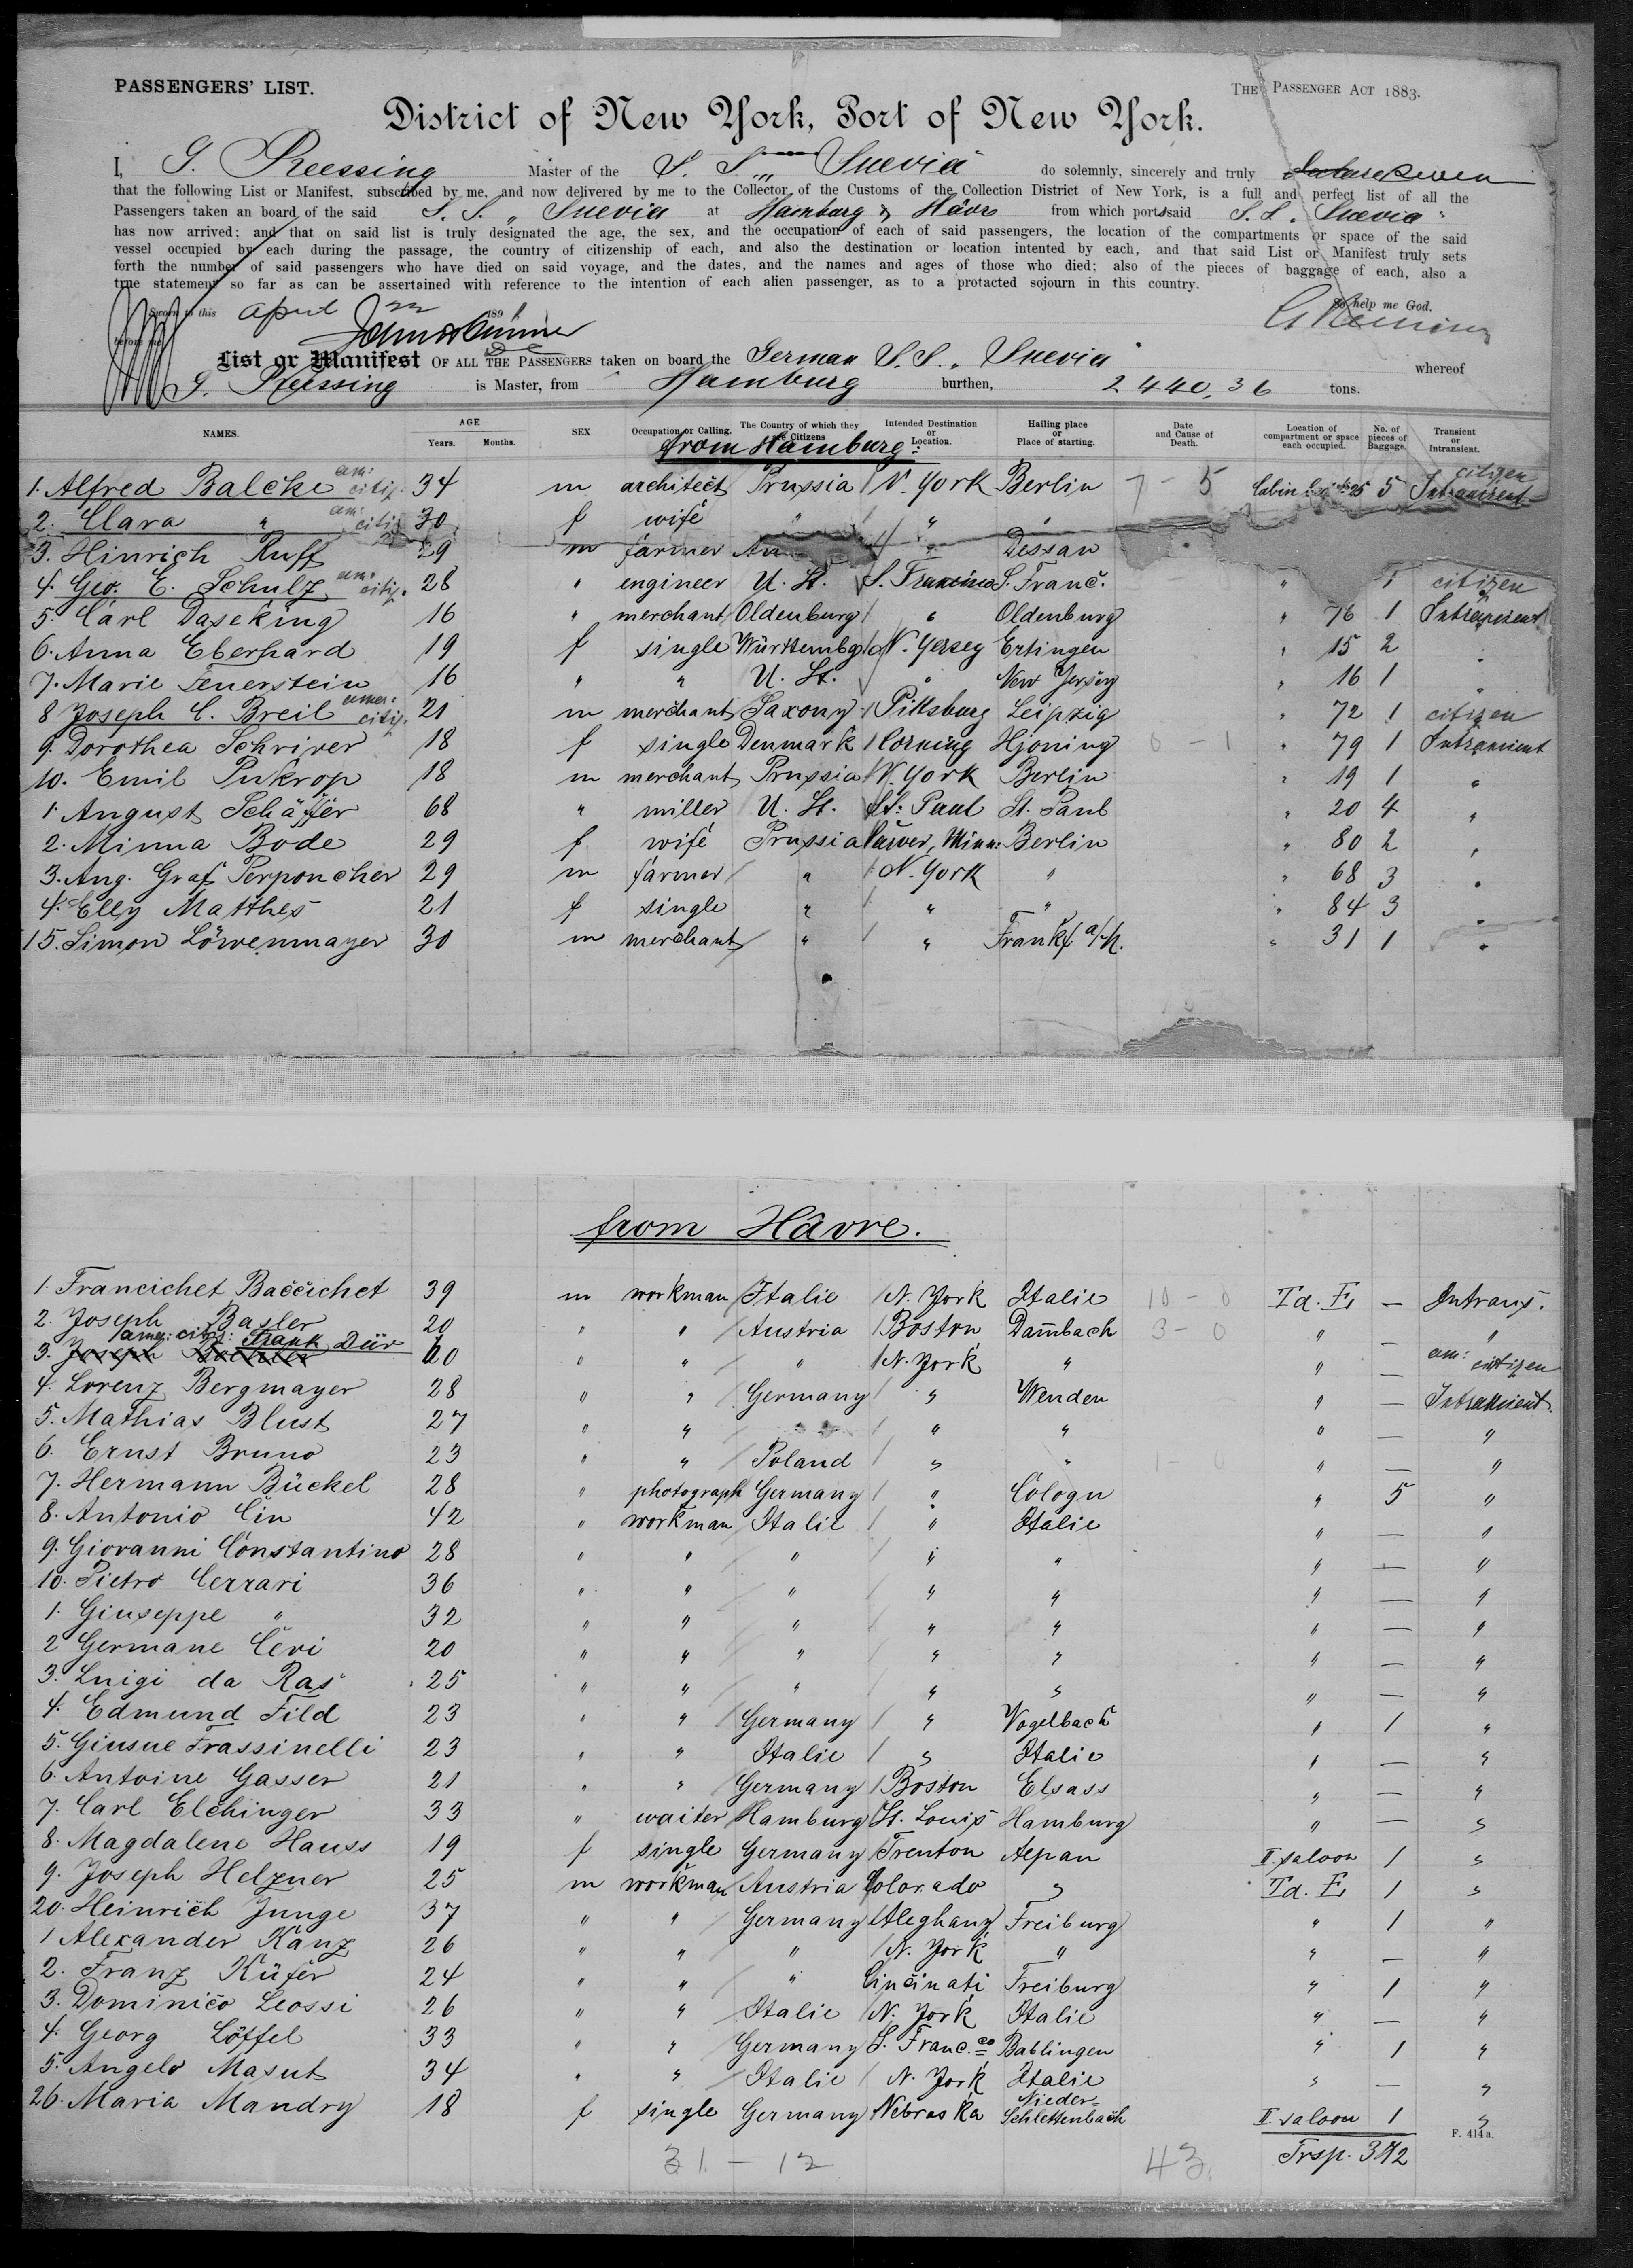 PASSENGERS' LIST.
THE PASSENGER ACT 1883.
District of New York, Port of New York.
I, G. Reessing Master of the S. S. „Suevia" do solemnly, sincerely and truly
that the following List or Manifest, subscribed by me, and now delivered by me to the Collector of the Customs of the Collection District of New York, is a full and perfect list of all the
Passengers taken an board of the said S. S. „Suevia at Hamburg & Hâvre from which ports said S. S. „Suevia"
has now arrived; and that on said list is truly designated the age, the sex, and the occupation of each of said passengers, the location of the compartments or space of the said
vessel occupied by each during the passage, the country of citizenship of each, and also the destination or location intented by each, and that said List or Manifest truly sets
forth the number of said passengers who have died on said voyage, and the dates, and the names and ages of those who died; also of the pieces of baggage of each, also a
true statement so far as can be assertained with reference to the intention of each alien passenger, as to a protacted sojourn in this country.
Sworn to this April 22 189 So help me God.
before me
List or Manifest OF ALL THE PASSENGERS taken on board the German S. S. „Suevia" whereof
G. Reessing is Master, from Hamburg burthen, 2440,36 tons.
NAMES. AGE Years. Months. SEX Occupation or Calling. The Country of which they are Citizens Intended Destination or Location. Hailing place or Place of starting. Date and Cause of Death. Location of compartment or space each occupied. No. of pieces of Baggage. Transient or Intransient.
from Hamburg:
1. Alfred Balcke am: citiz. 34 m architect Prussia N. York Berlin 7 - 5 Cabin 25 5 Intransient citizen
2. Clara " am: citiz. 30 f wife " " "
3. Hinrich Ruff 29 m farmer " Dessau
4. Geo. E. Schulz am: citiz. 28 " engineer U. St. S. Francisco S. Franc. " 1 citizen
5. Carl Daseking 16 " merchant Oldenburg " Oldenburg " 76 1 Intransient
6. Anna Eberhard 19 f single Württembg N. Yersey Ertingen " 15 2 "
7. Marie Feuerstein 16 " " U. St. " New Yersey " 16 1 "
8 Joseph C. Breil amer: citiz. 21 m merchant Saxony Pittsburg Leipzig " 72 1 citizen
9. Dorothea Schriver 18 f single Denmark Corning Hjoning 0 - 1 " 79 1 Intransient
10. Emil Pukrop 18 m merchant Prussia N. York Berlin " 19 1 "
1. August Schäffer 68 " miller U. St. St. Paul St. Paul " 20 4 "
2. Minna Bode 29 f wife Prussia Carver, Minn: Berlin " 80 2 "
3. Aug. Graf Perponcher 29 m farmer " N. York " " 68 3 "
4. Elly Matthes 21 f single " " " " 84 3 "
15. Simon Löwenmayer 30 m merchant " " Frankf a/M. " 31 1 "
from Hâvre.
1. Francichet Baccichet 39 m workman Italie N. York Italie 10 - 0 Td. E, — Intrans.
2. Joseph Basler 20 " " Austria Boston Dambach 3 - 0 " — "
amer: citiz: Frank Dür
3. Joseph 20 " " " N. York " " — am: citizen
4. Lorenz Bergmayer 28 " " Germany " Wenden " — Intransient.
5. Mathias Blust 27 " " " " " " — "
6. Ernst Bruno 23 " " Poland " " 1 - 0 " — "
7. Hermann Bückel 28 " photograph Germany " Cologn " 5 "
8. Antonio Cin 42 " workman Italie " Italie " — "
9. Giovanni Constantino 28 " " " " " " — "
10. Pietro Cerrari 36 " " " " " " — "
1. Giuseppe " 32 " " " " " " — "
2 Germane Ceri 20 " " " " " " — "
3. Luigi da Ras 25 " " " " " " — "
4. Edmund Fild 23 " " Germany " Vogelbach " 1 "
5. Giusue Frassinelli 23 " " Italie " Italie " — "
6. Antoine Gasser 21 " " Germany Boston Elsass " — "
7. Carl Elchinger 33 " waiter Hamburg St. Louis Hamburg " — "
8. Magdalene Hauss 19 f single Germany Trenton Aepan II. saloon 1 "
9. Joseph Helzner 25 m workman Austria Colorado " Td. E, 1 "
20. Heinrich Junge 37 " " Germany Aleghany Freiburg " 1 "
1 Alexander Kanz 26 " " " N. York " " — "
2. Franz Küfer 24 " " " Cincinati Freiburg " 1 "
3. Dominico Leossi 26 " " Italie N. York Italie " — "
4. Georg Löffel 33 " " Germany S. Franc.co Bablingen " 1 "
5. Angelo Masut 34 " " Italie N. York Italie " — "
26. Maria Mandry 18 f single Germany Nebraska Nieder-Schlettenbach II. saloon 1 "
F. 414a.
31 - 12 43. Trsp. 372